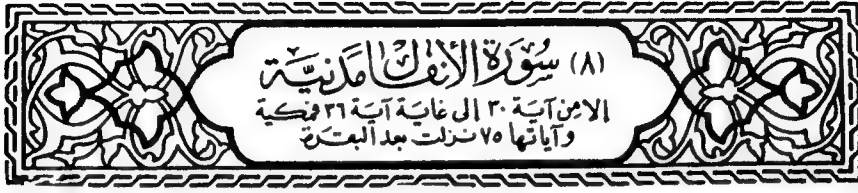 (٨) سُورَة الأنفَال مَدَنيَّة
إلا مِن آيَة ٣٠ إلى غايَة آيَة ٣٦ فمكية
وآياتها ٧٥ نزلت بعد البقرة